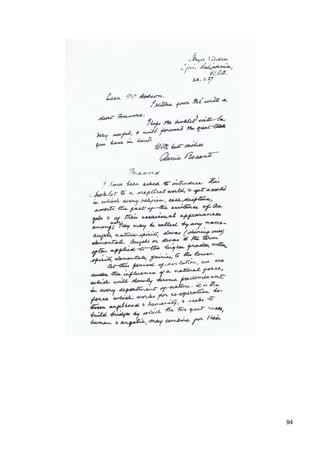 Ojai, California,
U.S.A.
26.1.27
Dear Mr Hodson.
I return your MS with a
short Foreword.
I hope the booklet will be
very useful, & will forward the great task
you have in hand.
With best wishes
Annie Besant
Foreword
I have been asked to introduce this
booklet to a sceptical world, & yet a world
in which every religion, each scripture,
asserts the fact of the existence of An
gels & of their occasional appearances
among They may be called by any name—
angels, nature-spirits, devas (shining ones)
elementals. Angels or devas is the term
often applied to the higher grades, nature
spirits, elementals, fairies, to the lower.
At this period of evolution, we are
under the influence of a natural force,
which will slowly become predominant
in every department of nature: it is the
force which works for co-operation be-
tween angelhood & humanity, & seeks to
build bridges by which the two great
human & angelic, may combine for their
94